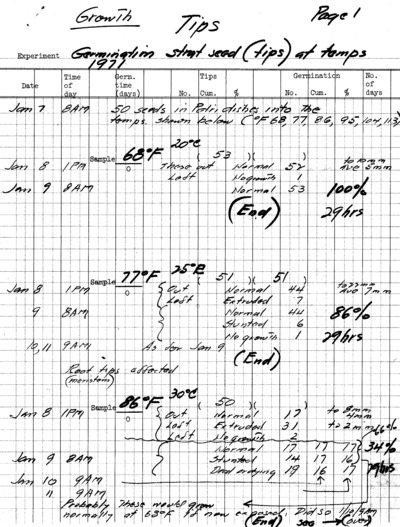 Growth Tips Page 1
Experiment Germination strat seed (tips) at temps
1971
Date Time of day Germ. time (days) Tips No. Cum. % Germination No. Cum. % No. of days
Jan 7 8AM 50 seeds in Petri dishes into the
temps. shown below (°F 68, 77, 86, 95, 104, 113)
Sample 68°F 20°C ( 53 )( to 10mm
Jan 8 1PM 0 These out Normal 52 Ave 5mm
Left No growth 1
Jan 9 8AM Normal 53 100%
(End) 29 hrs
Sample 77°F 25°C ( 51 )( 51 to 22mm
Jan 8 1PM 0 Out Normal 44 Ave 7mm
Left Extruded 7
9 8AM Normal 44 86%
Stunted 6
No growth 1 29hrs
10, 11 9AM As for Jan 9 (End)
Root tips affected
(meristem)
Sample 86°F 30°C ( 50 )(
Jan 8 1PM 0 Out Normal 17 to 8mm 4mm
Left Extruded 31 to 2mm 66%
Left No growth 2
Normal 17 17 17 34%
Jan 9 8AM Stunted 14 17 16
Dead or dying 19 16 17 29hrs
Jan 10 9AM
11 9AM
Probably these would grow
normally at 68°F to new exposed. Did so 1/12 9AM
(End) (over)